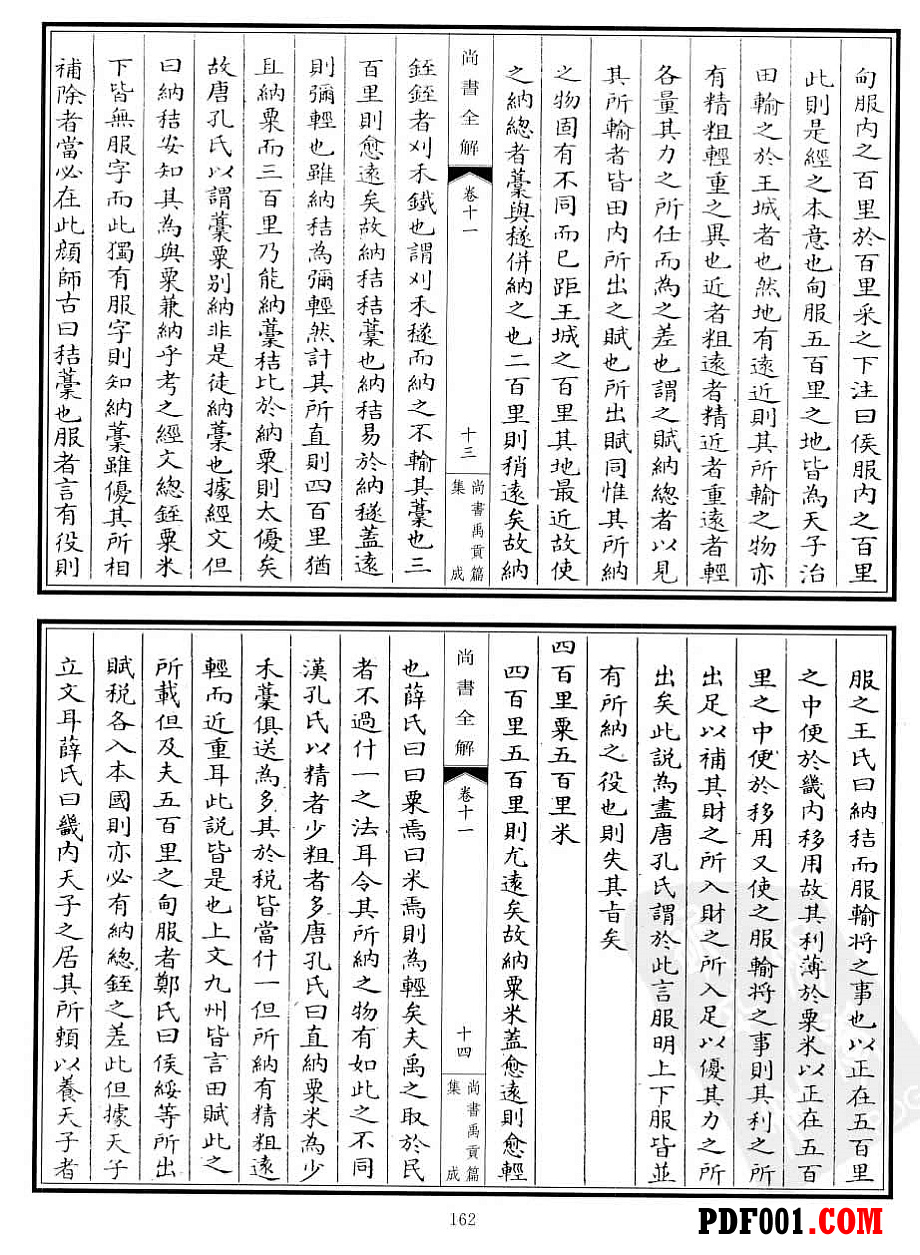 甸服內之百里於百里采之下注曰侯服內之百里
此則是經之本意也甸服五百里之地皆為天子治
田輸之於王城者也然地有遠近則其所輸之物亦
有精粗輕重之異也近者粗遠者精近者重遠者輕
各量其力之所任而為之差也謂之賦納總者以見
其所輸者皆田內所出之賦也所出賦同惟其所納
之物固有不同而已距王城之百里其地最近故使
之納總者藁與穟併納之也二百里則稍遠矣故納
尚書全解
卷十一
十三
尚書禹貢篇集成
銍銍者刈禾鐵也謂刈禾穟而納之不輸其藁也三
百里則愈遠矣故納秸秸藁也納秸易於納穟蓋遠
則彌輕也雖納秸為彌輕然計其所直則四百里猶
且納粟而三百里乃能納藁秸比於納粟則太優矣
故唐孔氏以謂藁粟别納非是徒納藁也據經文但
曰納秸安知其為與粟兼納乎考之經文總銍粟米
下皆無服字而此獨有服字則知納藁雖優其所相
補除者當必在此顔師古曰秸藁也服者言有役則
服之王氏曰納秸而服輸將之事也以正在五百里
之中便於畿內移用故其利薄於粟米以正在五百
里之中便於移用又使之服輸將之事則其利之所
出足以補其財之所入財之所入足以優其力之所
出矣此説為盡唐孔氏謂於此言服明上下服皆並
有所納之役也則失其㫖矣
四百里粟五百里米
四百里五百里則尤遠矣故納粟米蓋愈遠則愈輕
尚書全解
卷十一
十四
尚書禹貢篇集成
也薛氏曰曰粟焉曰米焉則為輕矣夫禹之取於民
者不過什一之法耳令其所納之物有如此之不同
漢孔氏以精者少粗者多唐孔氏曰直納粟米為少
禾藁俱送為多其於税皆當什一但所納有精粗遠
輕而近重耳此説皆是也上文九州皆言田賦此之
所載但及夫五百里之甸服者鄭氏曰侯綏等所出
賦税各入本國則亦必有納總銍之差此但據天子
立文耳薛氏曰畿內天子之居其所賴以養天子者
162
PDF001.COM